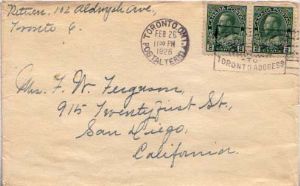 Return, 102 Aldwych Ave,
Toronto 6.
TORONTO, ONT.
FEB 26
PM
1926
POSTAL TERM. A
TO
TORONTO ADDRESS
Mrs. F. W. Ferguson,
915 Twentyfirst St.,
San Diego,
California